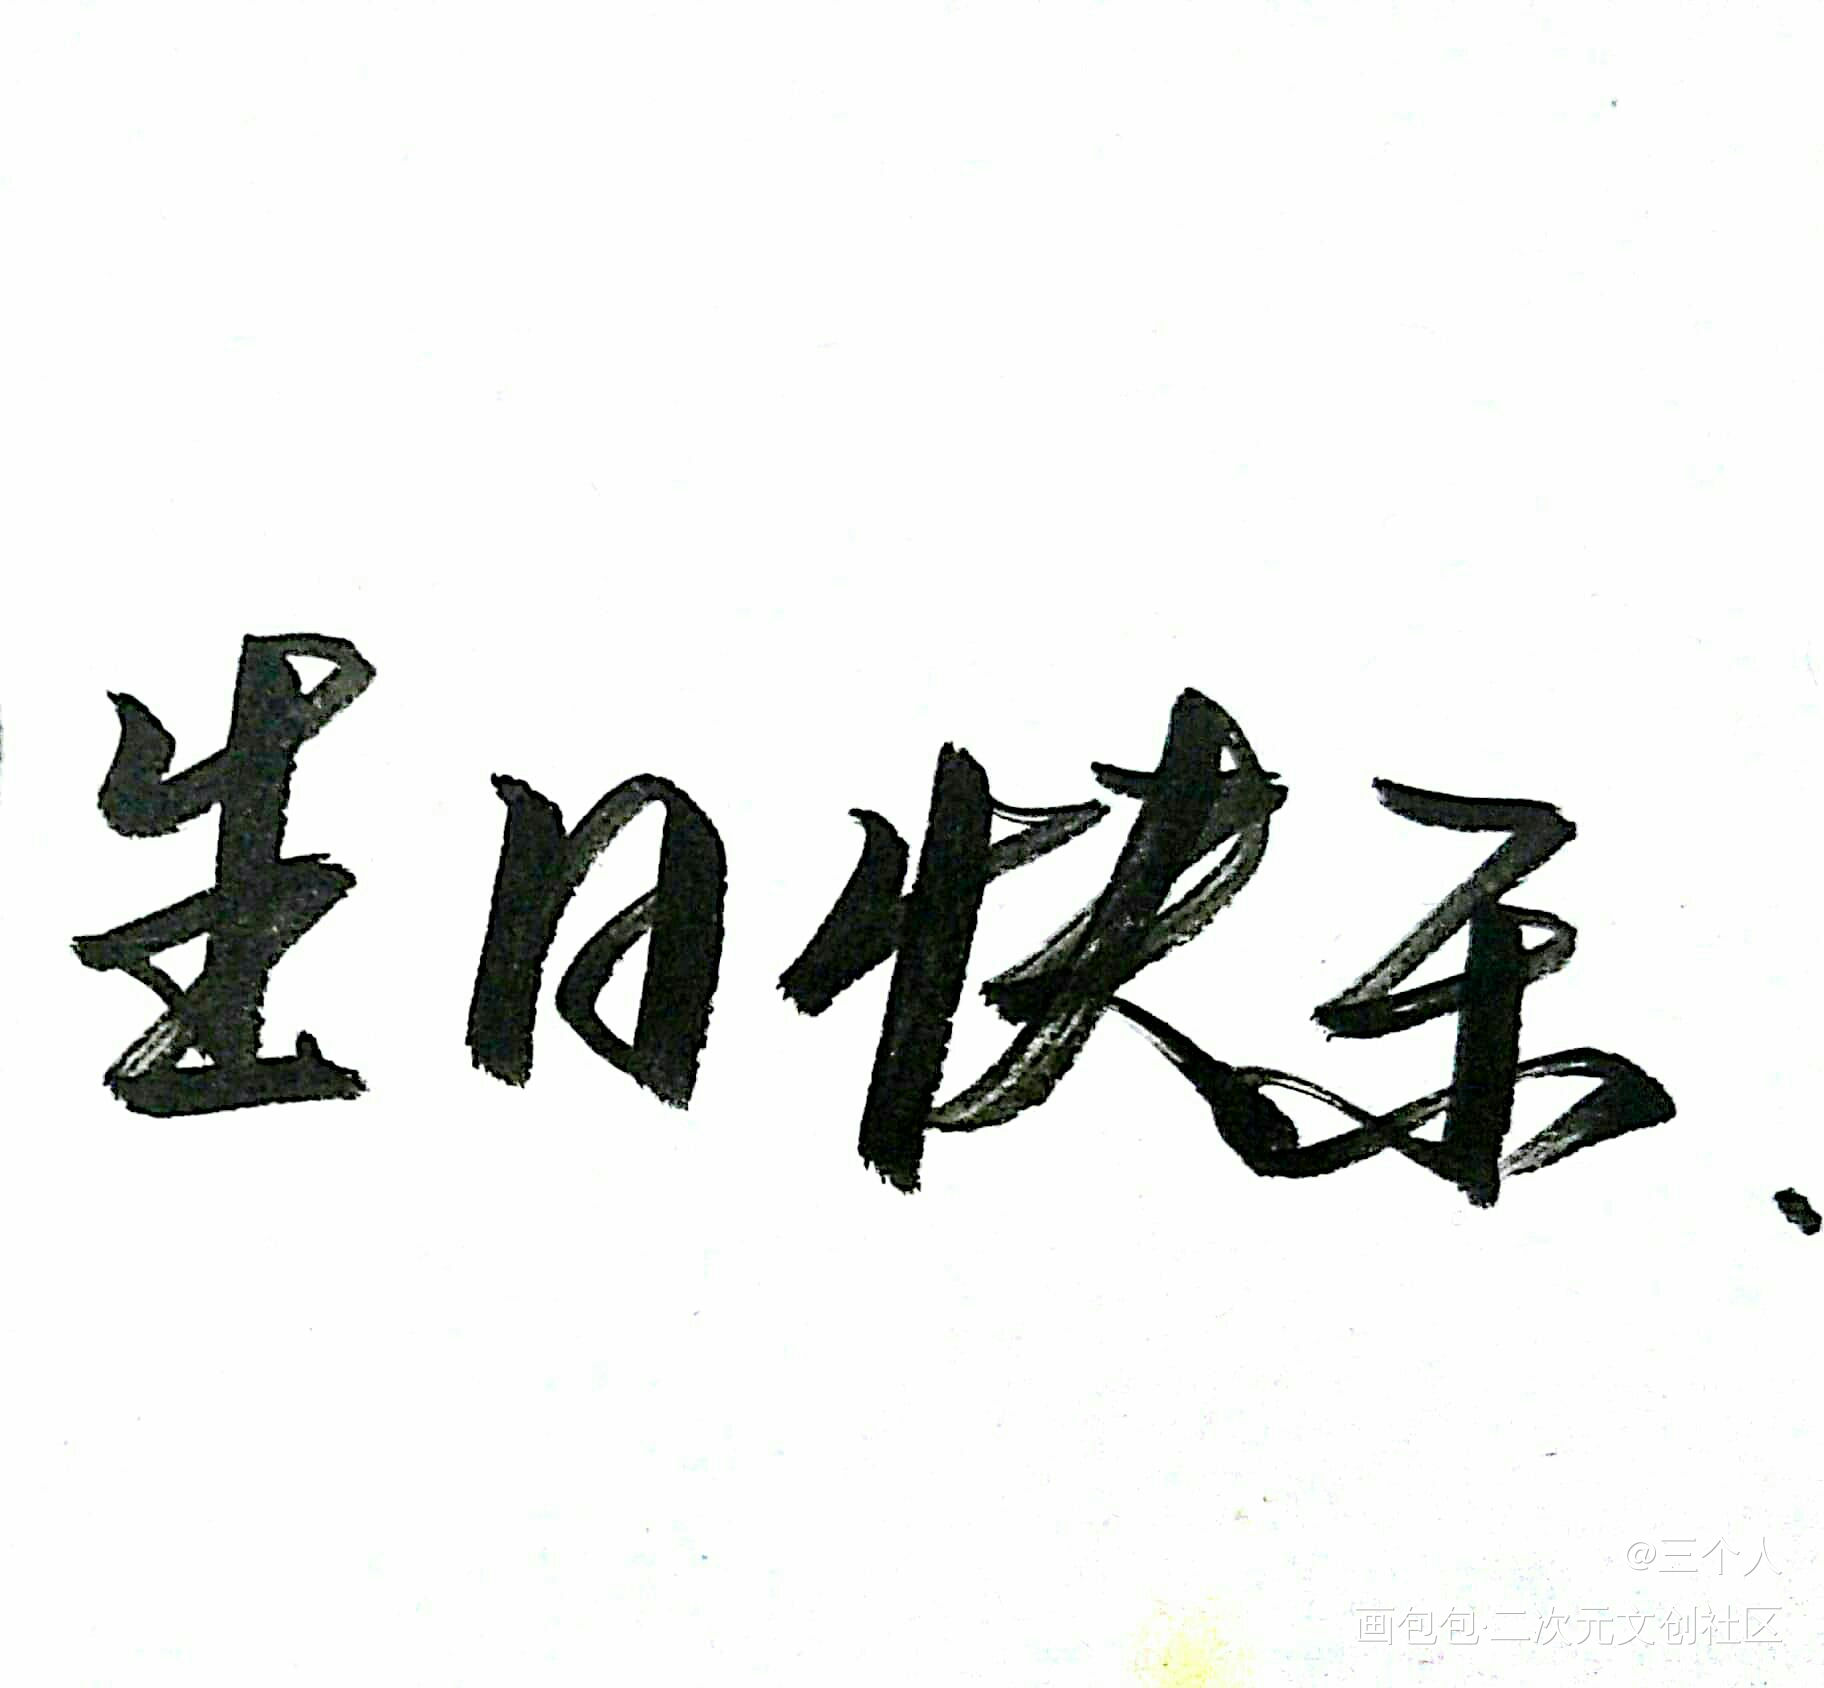 生日快乐.
@三个人
画包包·二次元文创社区